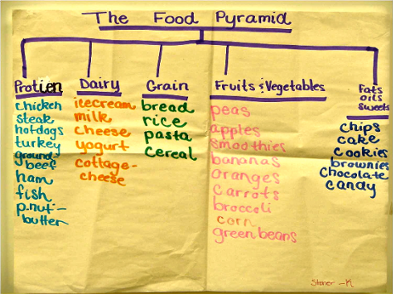 The Food Pyramid
Protien
chicken
steak
hotdogs
turkey
ground
beef
ham
fish
p.nut-
butter
Dairy
icecream
milk
cheese
yogurt
cottage-
cheese
Grain
bread
rice
pasta
cereal
Fruits & Vegetables
peas
apples
smoothies
bananas
oranges
carrots
broccoli
corn
green beans
Fats
oils
sweets
chips
cake
cookies
brownies
chocolate
candy